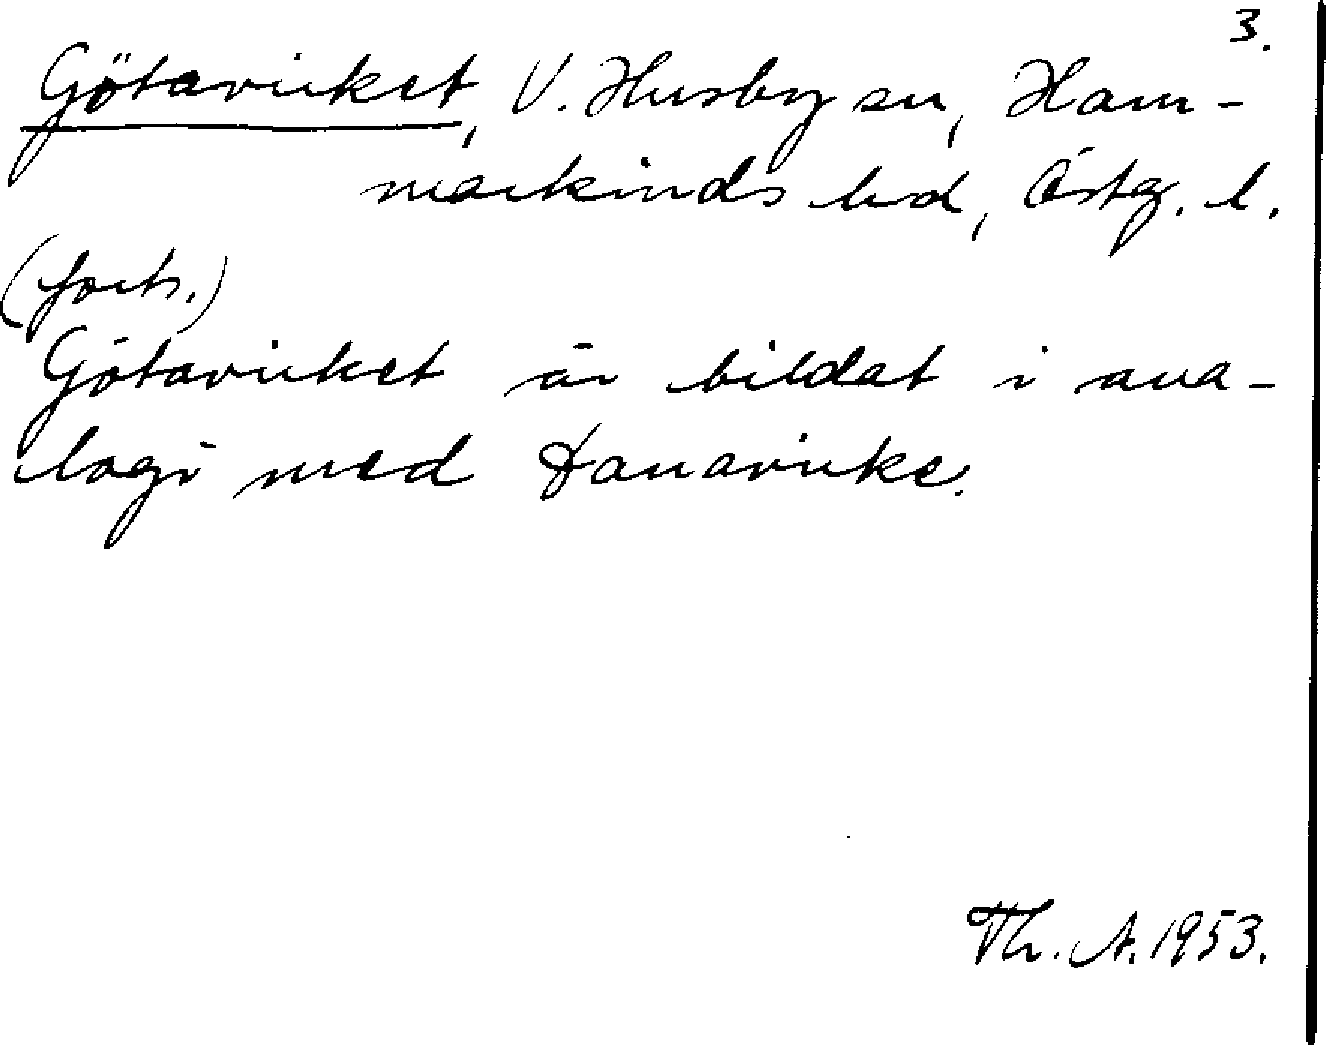 3.
Götavirket, V. Husby sn, Ham-
markinds hd, Östg. l.
(forts.)
Götavirket är bildat i ana-
logi med Danavirke.
Th. A. 1953.